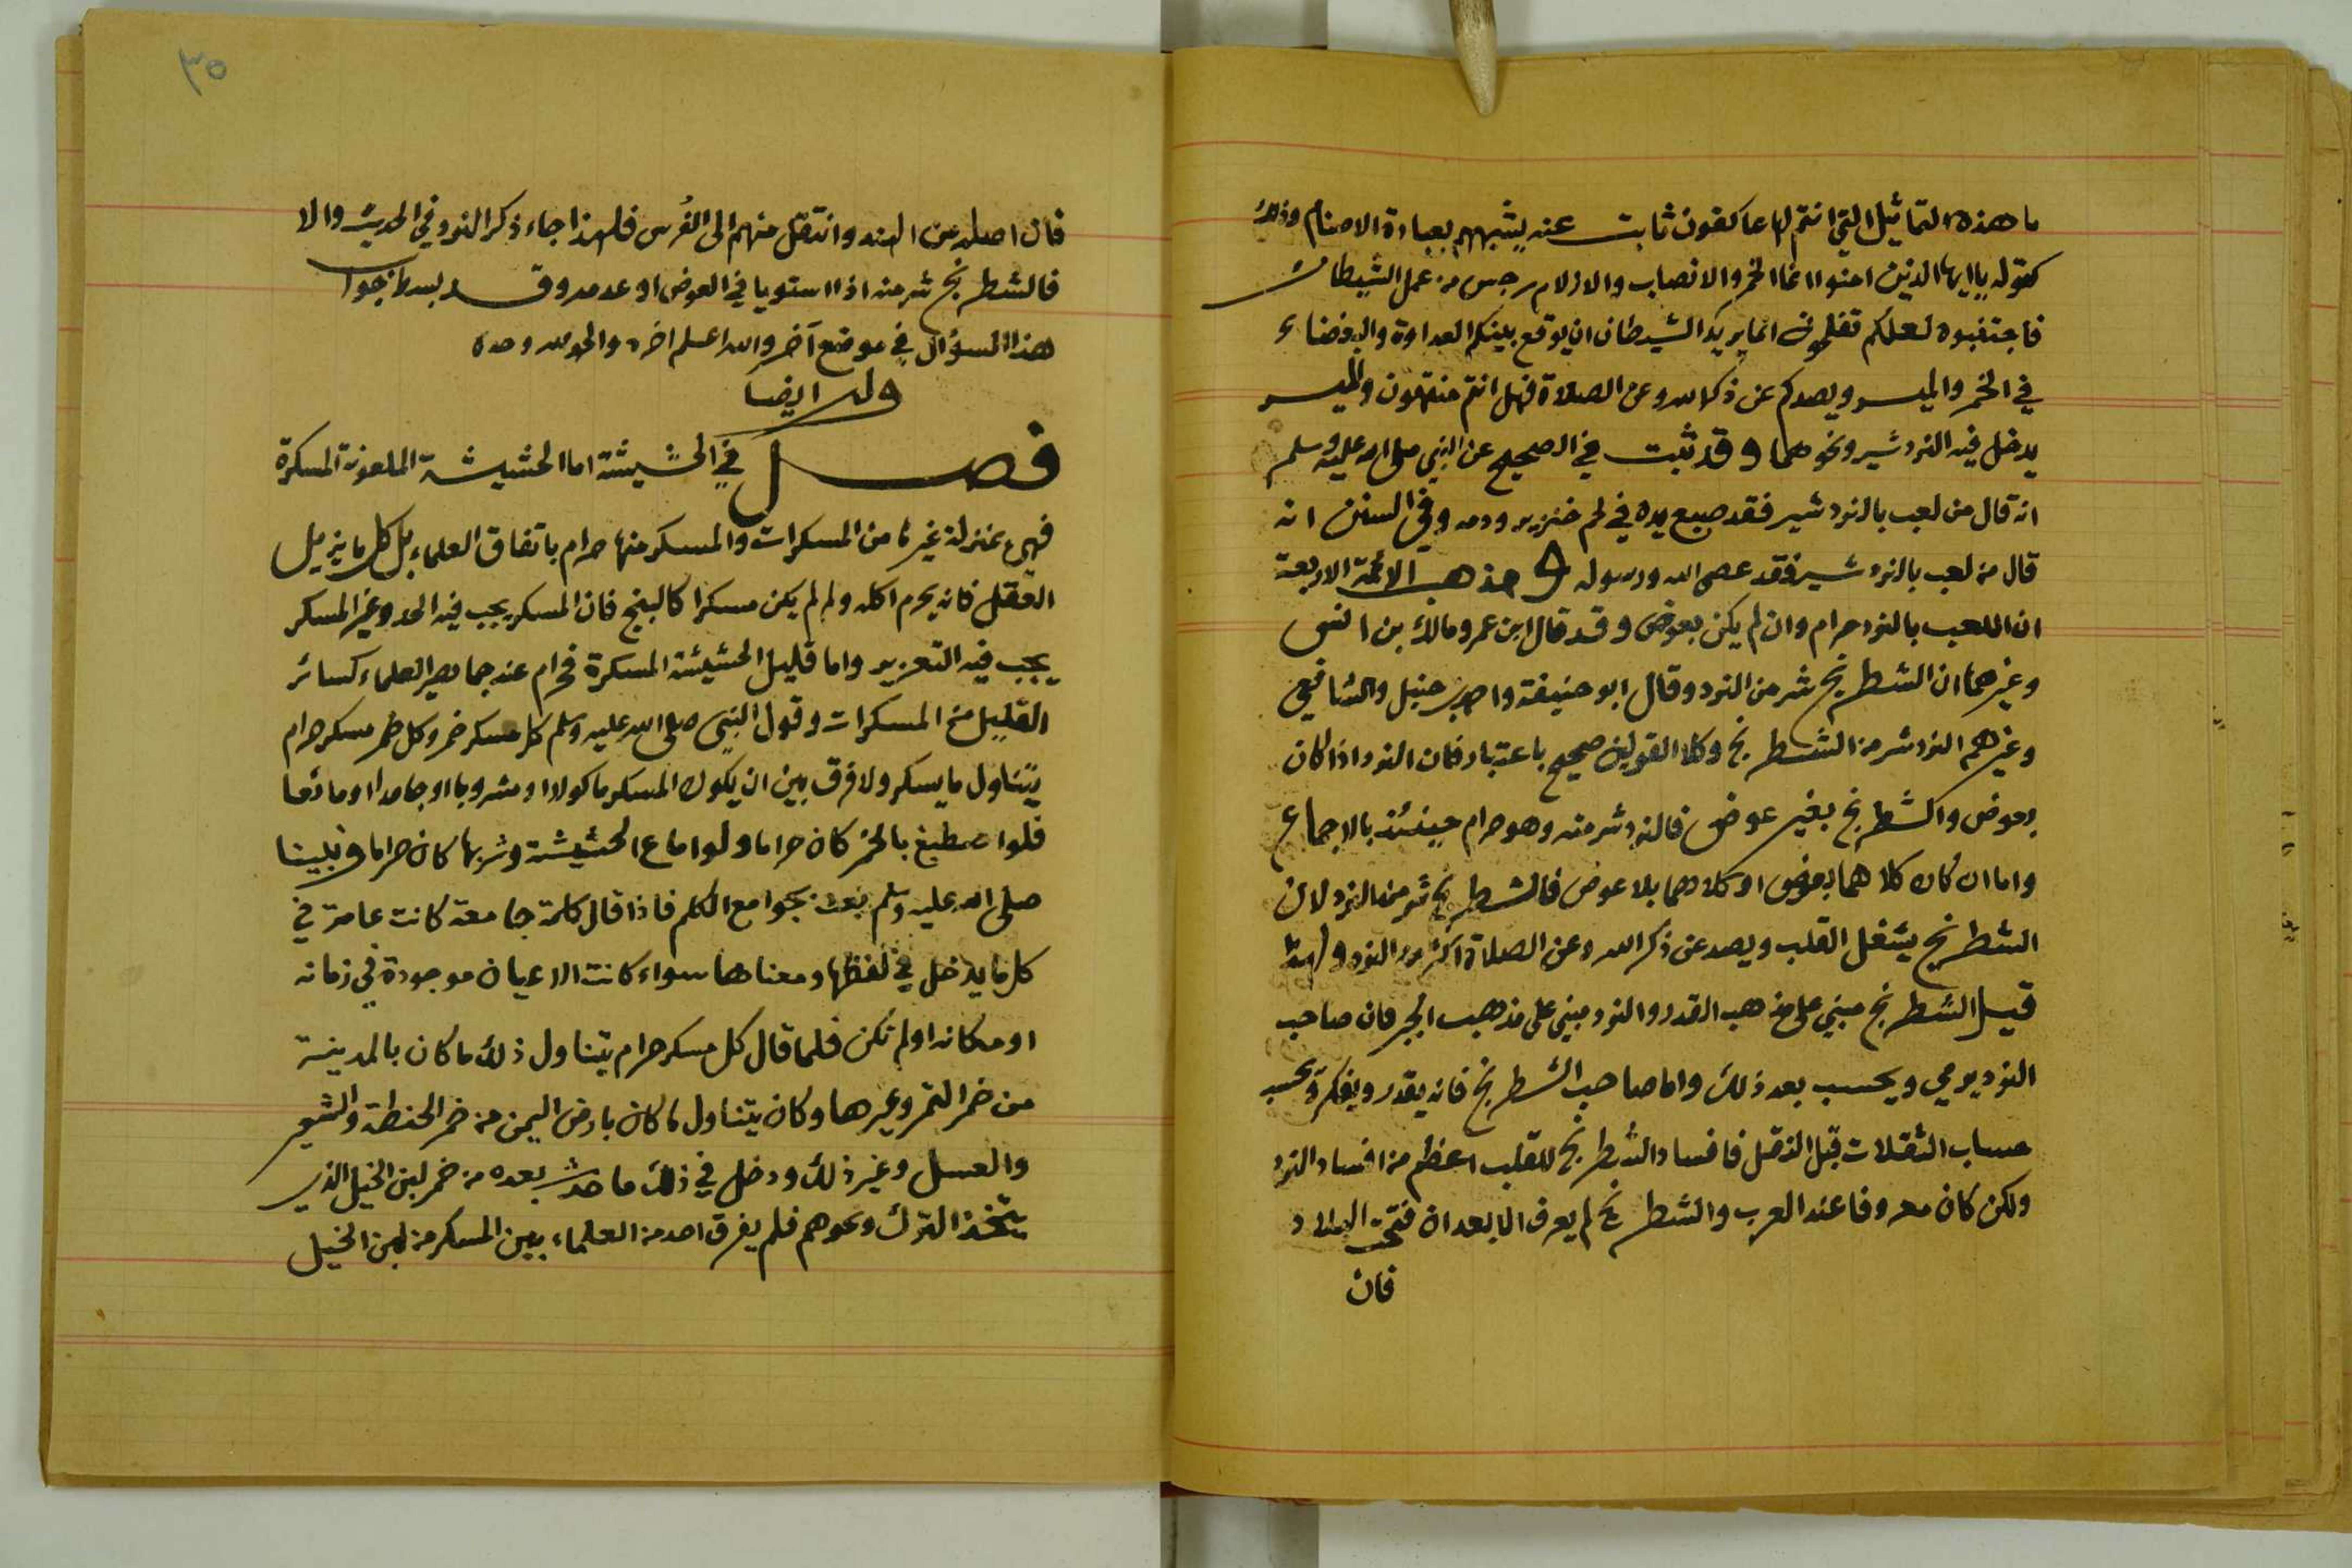 ما هذه التماثيل التي انتم لها عاكفون ثابت عنه يشبههم بعبادة الاصنام وذلك
كقوله ياايها الذين امنوا انما الخمر والانصاب والازلام رجس من عمل الشيطان
فاجتنبوه لعلكم تفلحون انما يريد الشيطان ان يوقع بينكم العداوة والبغضاء
في الخمر والميسر ويصدكم عن ذكر الله وعن الصلاة فهل انتم منتهون والميسر
يدخل فيه النردشير ونحوهما وقد ثبت في الصحيح عن النبي صلى الله عليه وسلم
انه قال من لعب بالنردشير فقد صبغ يده في لحم خنزير ودمه وفي السنن انه
قال من لعب بالنردشير فقد عصى الله ورسوله و مذهب الائمة الاربعة
ان اللعب بالنرد حرام وان لم يكن بعوض وقد قال ابن عمر ومالك بن انس
وغيرهما ان الشطرنج شر من النرد وقال ابو حنيفة واحمد بن حنبل والشافعي
وغيرهم النرد شر من الشطرنج وكلا القولين صحيح باعتبار فان النرد اذا كان
بعوض والشطرنج بغير عوض فالنرد شر منه وهو حرام حينئذ بالاجماع
واما ان كان كلاهما بعوض او كلاهما بلا عوض فالشطرنج شر من النرد لان
الشطرنج يشغل القلب ويصد عن ذكر الله وعن الصلاة اكثر من النرد ولهذا
قيل الشطرنج مبني على مذهب القدر والنرد مبني على مذهب الجبر فان صاحب
النرد يرمي ويحسب بعد ذلك واما صاحب الشطرنج فانه يقدر ويفكر ويحسب
حساب النقلات قبل النقل فافساد الشطرنج للقلب اعظم من افساد النرد
ولكن كان معروفا عند العرب والشطرنج لم يعرف الا بعد ان فتحت البلاد
فان
٣٥
فان اصله من الهند وانتقل منهم الى الفُرس فلهذا جاء ذكر النرد في الحديث والا
فالشطرنج شر منه اذا استويا في العوض او عدمه وقد بسط جواب
هذا السؤال في موضع آخر والله اعلم اخره والحمد لله وحده
وله ايضا
فصل في الحشيشة اما الحشيشة الملعونة المسكرة
فهي بمنزلة غيرها من المسكرات والمسكر منها حرام باتفاق العلماء بل كل ما يزيل
العقل فانه يحرم اكله ولو لم يكن مسكرا كالبنج فان المسكر يجب فيه الحد وغير المسكر
يجب فيه التعزير واما قليل الحشيشة المسكرة فحرام عند جماهير العلماء كسائر
القليل من المسكرات وقول النبي صلى الله عليه وسلم كل مسكر خمر وكل خمر مسكر حرام
يتناول ما يسكر ولا فرق بين ان يكون المسكر ماكولا او مشروبا او جامدا او مائعا
فلو اصطبغ بالخمر كان حراما ولو اماع الحشيشة وشربها كان حراما ونبينا
صلى الله عليه وسلم بعث بجوامع الكلم فاذا قال كلمة جامعة كانت عامة في
كل ما يدخل في لفظها ومعناها سواء كانت الاعيان موجودة في زمانه
او مكانه او لم تكن فلما قال كل مسكر حرام يتناول ذلك ما كان بالمدينة
من خمر التمر وغيرها وكان يتناول ما كان بارض اليمن من خمر الحنطة والشعير
والعسل وغير ذلك ودخل في ذلك ما حدث بعده من خمر لبن الخيل الذي
يتخذ الترك ونحوهم فلم يفرق احد من العلماء بين المسكر من لبن الخيل